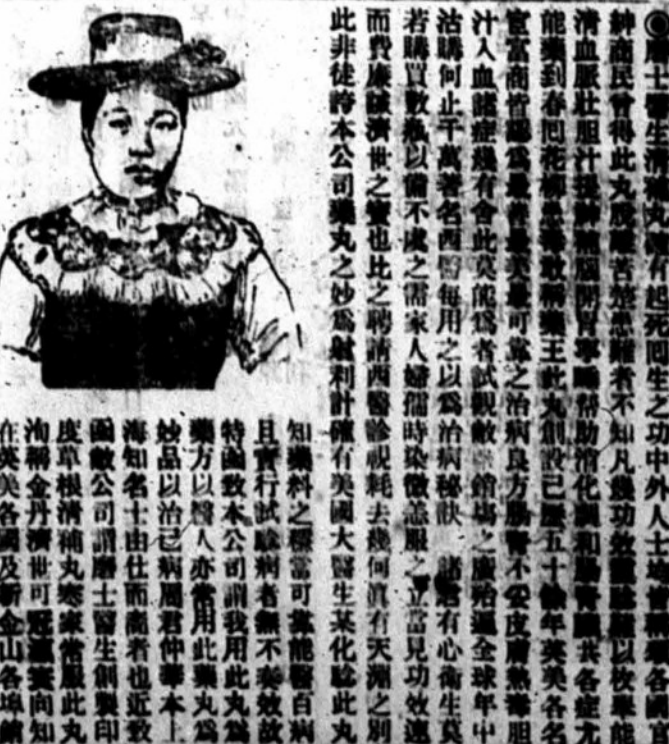 士醫生清補丸有起死回生之功中外人士各國
紳商民曾得此丸脫離苦楚患難者不知凡幾功效以枚舉能
清血脈壯胆汁開胃帮助消化調和腸胃共各症尤
能藥到春回花柳惡毒敢稱藥王此丸創設已歷五十餘年英美各名
宦富商皆認為最善最美最可靠之治病良方腸胃不妥皮膚熱毒胆
汁入血諸症幾有舍此莫能為者試觀敝 銷場之廣殆遍全球年中
沽購何止千萬著名西醫每用之以為治病秘訣 諸君有心衛生莫
若購買數瓶以備不虞之需家人婦孺時染微恙服之立當見功效速
而費廉誠濟世之寶也比之聘請西醫診視耗去幾何真有天淵之別
此非徒誇本公司藥丸之妙為射利計確有美國大醫生某化驗此丸
知藥料之穩當可靠能醫百病
且實行試驗病者無不奏效故
特函致本公司謂我用此丸為
藥方以醫人亦常用此藥丸為
妙品以治己病周君仲華本上
海知名士由仕而商者也近致
函敝公司謂磨士醫生創製印
度草根清補丸寒家常服此丸
洵稱金丹濟世可冠瀛寰向知
在英美各國及新金山各埠銷